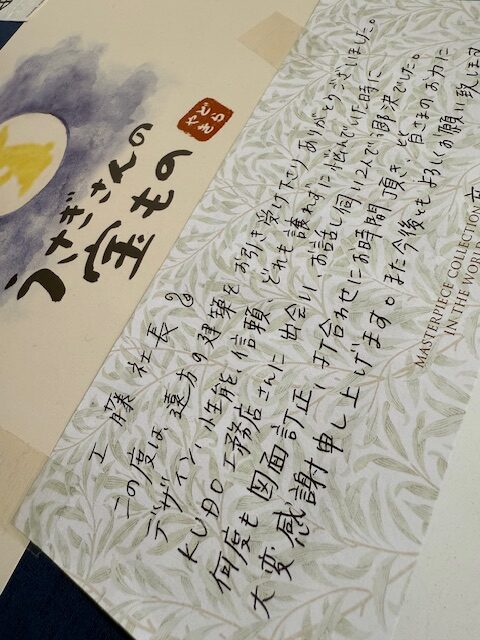 うさぎさんの
宝もの
工藤社長
この度は、遠方の建築をお引き受け下さりありがとうございました。
デザイン、性能、信頼、どれも譲れずに悩んでいた時に
KUDO工務店さんに出会い、お話し伺い2人で即決でした。
何度も図面訂正、打合わせにお時間頂き、皆さまのお力に
大変感謝申し上げます。また今後ともよろしくお願い致します
MASTERPIECE COLLECTION
IN THE WORLD